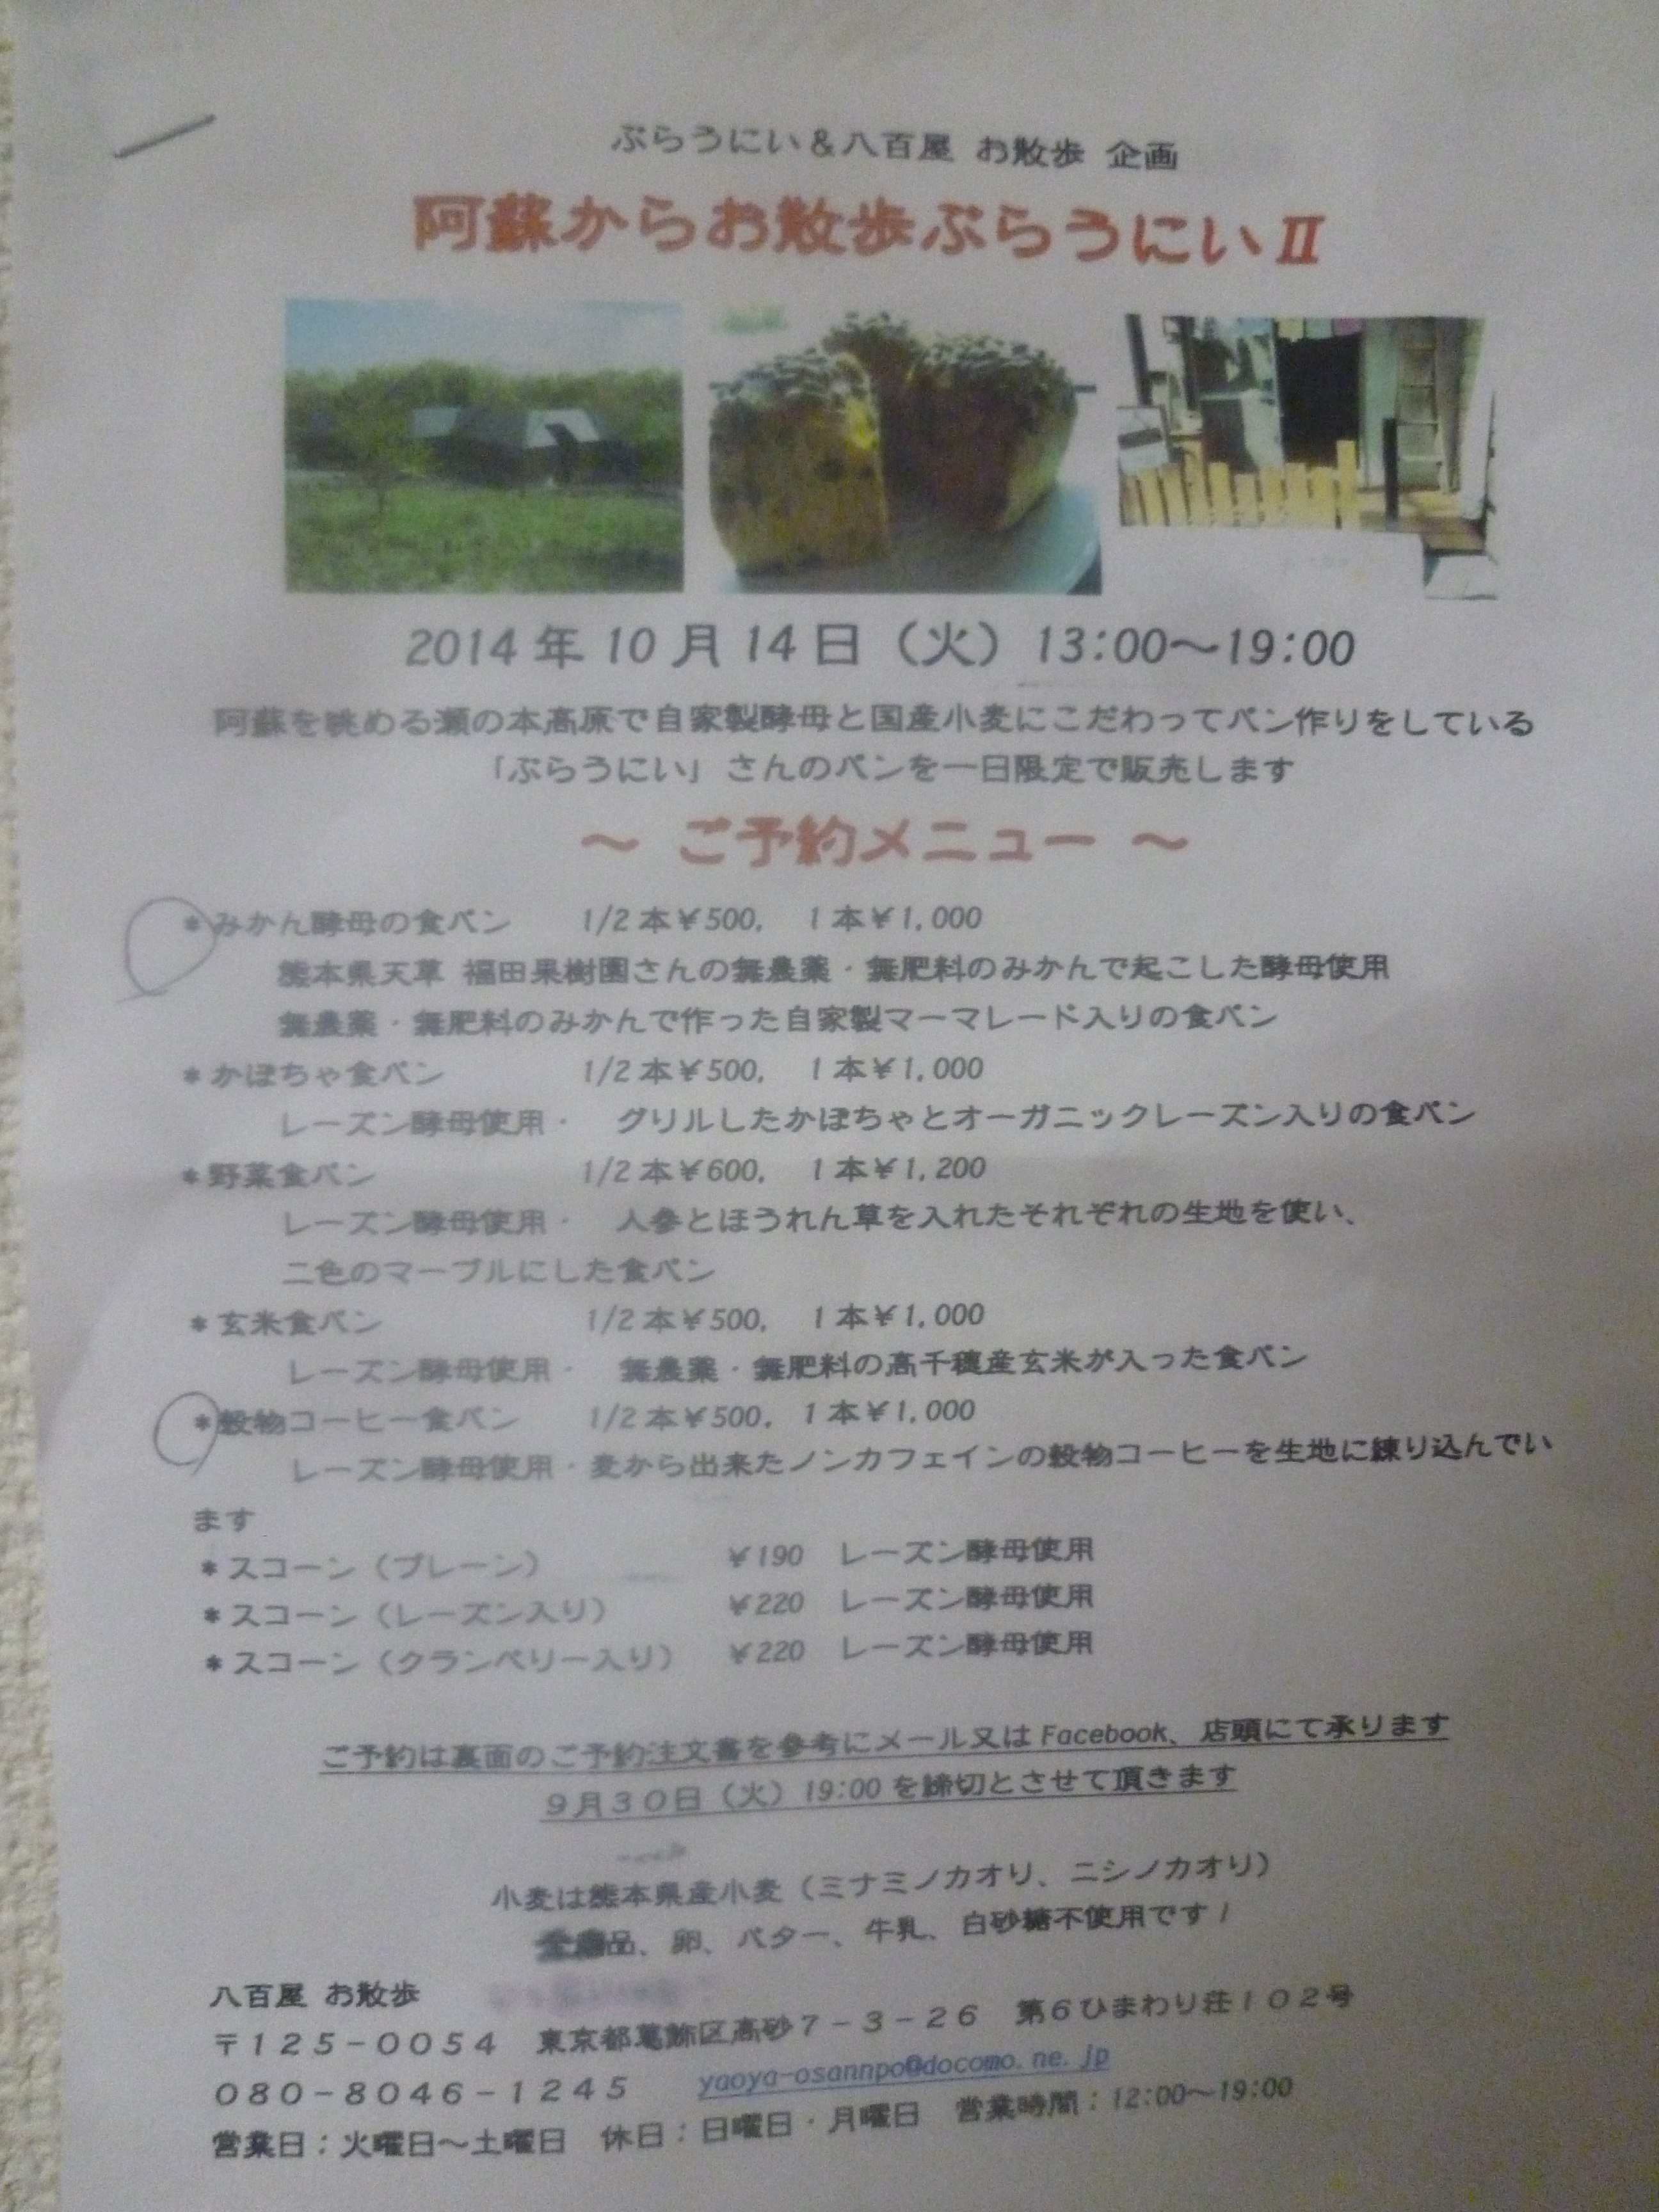 ぶらうにい＆八百屋 お散歩 企画
阿蘇からお散歩ぶらうにいⅡ
2014年10月14日（火）13:00～19:00
阿蘇を眺める瀬の本高原で自家製酵母と国産小麦にこだわってパン作りをしている
「ぶらうにい」さんのパンを一日限定で販売します
～ ご予約メニュー ～
*みかん酵母の食パン 1/2本￥500, 1本￥1,000
熊本県天草 福田果樹園さんの無農薬・無肥料のみかんで起こした酵母使用
無農薬・無肥料のみかんで作った自家製マーマレード入りの食パン
*かぼちゃ食パン 1/2本￥500, 1本￥1,000
レーズン酵母使用・ グリルしたかぼちゃとオーガニックレーズン入りの食パン
*野菜食パン 1/2本￥600, 1本￥1,200
レーズン酵母使用・ 人参とほうれん草を入れたそれぞれの生地を使い、
二色のマーブルにした食パン
*玄米食パン 1/2本￥500, 1本￥1,000
レーズン酵母使用・ 無農薬・無肥料の高千穂産玄米が入った食パン
*穀物コーヒー食パン 1/2本￥500, 1本￥1,000
レーズン酵母使用・麦から出来たノンカフェインの穀物コーヒーを生地に練り込んでい
ます
*スコーン（プレーン） ￥190 レーズン酵母使用
*スコーン（レーズン入り） ￥220 レーズン酵母使用
*スコーン（クランベリー入り） ￥220 レーズン酵母使用
ご予約は裏面のご予約注文書を参考にメール又はFacebook、店頭にて承ります
９月３０日（火）19:00を締切とさせて頂きます
小麦は熊本県産小麦（ミナミノカオリ、ニシノカオリ）
品、卵、バター、牛乳、白砂糖不使用です！
八百屋 お散歩
〒１２５－００５４ 東京都葛飾区高砂７－３－２６ 第６ひまわり荘１０２号
０８０－８０４６－１２４５ yaoya-osannpo@docomo.ne.jp
営業日：火曜日～土曜日 休日：日曜日・月曜日 営業時間：12:00～19:00